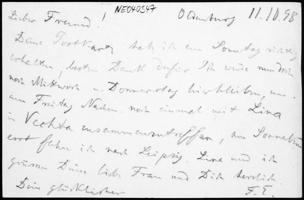 Lieber Freund! NE040347 Oldenburg 11.10.98
Deine Postkarte hab ich am Sonntag richtig
erhalten, besten Dank dafür. Ich werde nun
noch Mittwoch u. Donnerstag hierbleiben, um
am Freitag noch einmal mit Lina
in Vechta zusammenzutreffen, am Sonnabend
erst fahre ich nach Leipzig. Lina und ich
grüssen Deine liebe Frau und Dich herzlich
Dein glücklicher F.T.